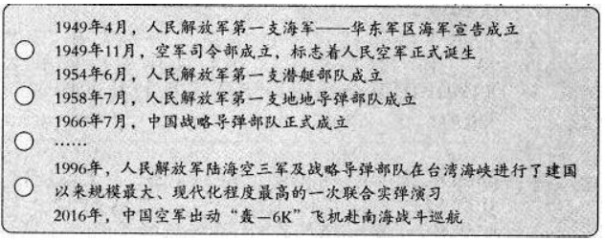 1949年4月，人民解放军第一支海军——华东军区海军宣告成立
1949年11月，空军司令部成立，标志着人民空军正式诞生
1954年6月，人民解放军第一支潜艇部队成立
1958年7月，人民解放军第一支地地导弹部队成立
1966年7月，中国战略导弹部队正式成立
……
1996年，人民解放军陆海空三军及战略导弹部队在台湾海峡进行了建国
以来规模最大、现代化程度最高的一次联合实弹演习
2016年，中国空军出动“轰—6K”飞机赴南海战斗巡航